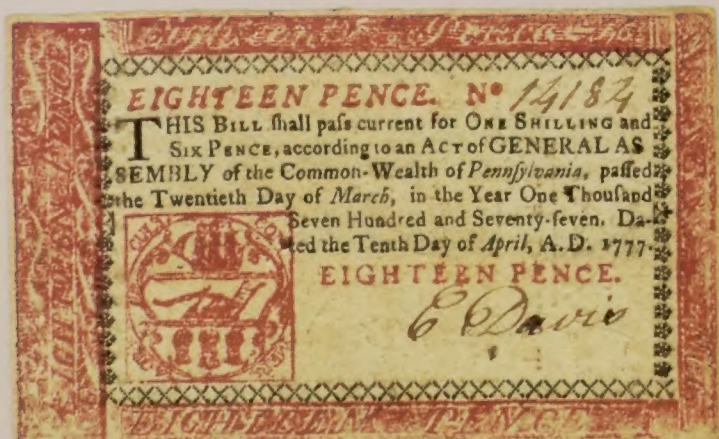 Eighteen Pence
EIGHTEEN PENCE. Nº 14184
THIS BILL ſhall paſs current for ONE SHILLING and
SIX PENCE, according to an ACT of GENERAL AS
SEMBLY of the Common-Wealth of Pennſylvania, paſſed
the Twentieth Day of March, in the Year One Thouſand
Seven Hundred and Seventy-ſeven. Da-
ted the Tenth Day of April, A.D. 1777.
EIGHTEEN PENCE.
E Davis
EIGHTEEN PENCE
EIGHTEEN PENCE